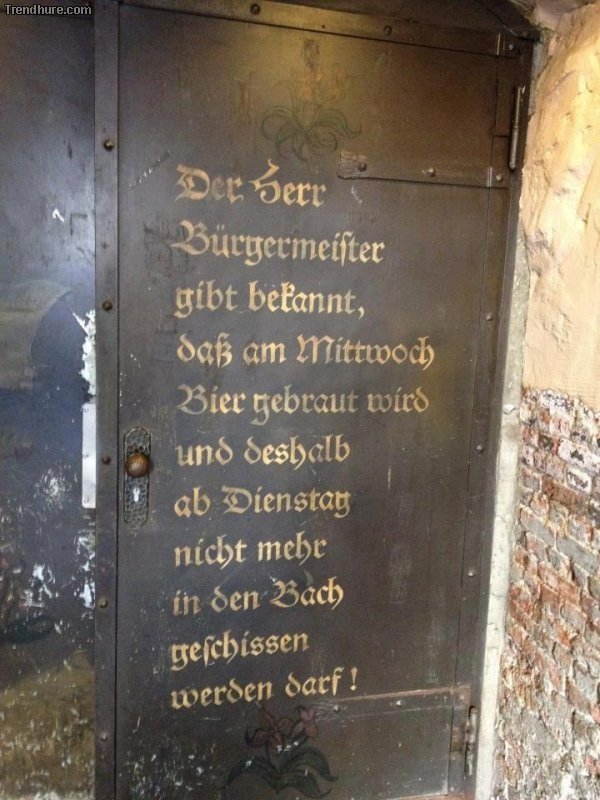 Trendhure.com
Der Herr
Bürgermeiſter
gibt bekannt,
daß am Mittwoch
Bier gebraut wird
und deshalb
ab Dienstag
nicht mehr
in den Bach
geſchissen
werden darf!